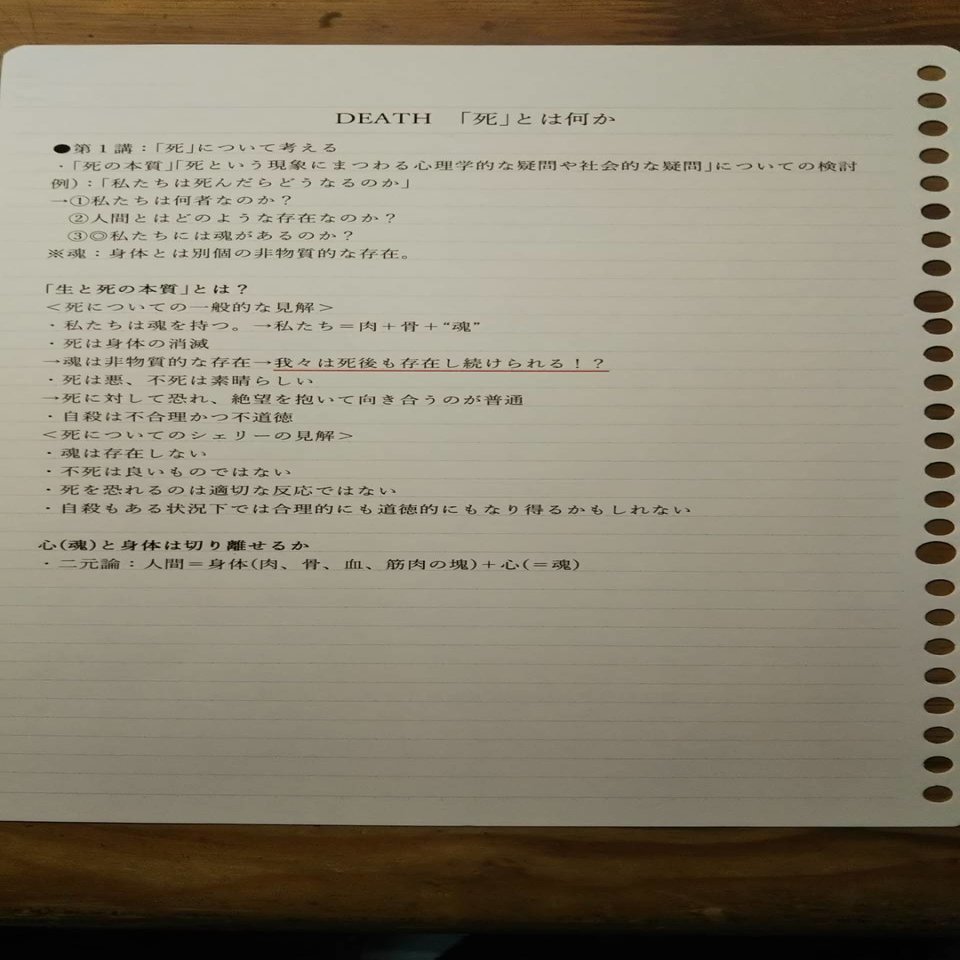 DEATH 「死」とは何か
●第1講：「死」について考える
・「死の本質」「死という現象にまつわる心理学的な疑問や社会的な疑問」についての検討
例）：「私たちは死んだらどうなるのか」
→①私たちは何者なのか？
②人間とはどのような存在なのか？
③◎私たちには魂があるのか？
※魂：身体とは別個の非物質的な存在。
「生と死の本質」とは？
＜死についての一般的な見解＞
・私たちは魂を持つ。→私たち＝肉＋骨＋“魂”
・死は身体の消滅
→魂は非物質的な存在→我々は死後も存在し続けられる！？
・死は悪、不死は素晴らしい
→死に対して恐れ、絶望を抱いて向き合うのが普通
・自殺は不合理かつ不道徳
＜死についてのシェリーの見解＞
・魂は存在しない
・不死は良いものではない
・死を恐れるのは適切な反応ではない
・自殺もある状況下では合理的にも道徳的にもなり得るかもしれない
心(魂)と身体は切り離せるか
・二元論：人間＝身体(肉、骨、血、筋肉の塊)＋心(＝魂)